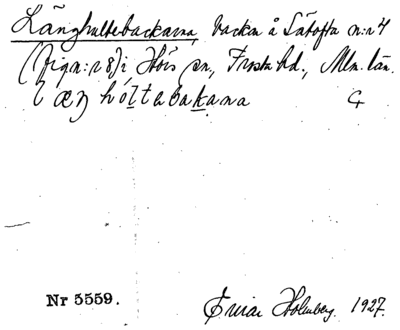 Långhultebackarna, backa å Sätofta n:r 4
(fig n:r 8) i Hörs sn, Frosta hd., Mlm. län.
l æŋ hóltebakana
Nr 5559. Einar Holmberg. 1927.